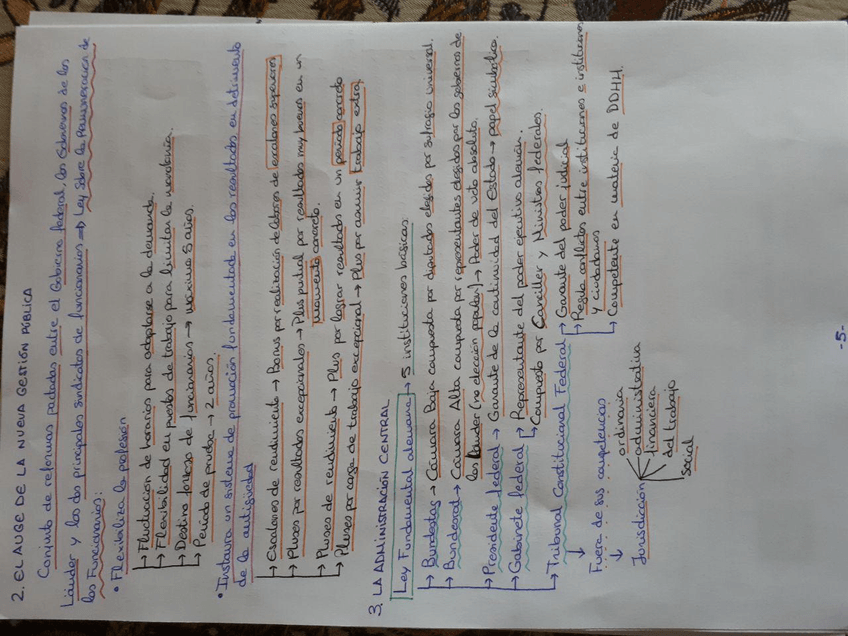 2. EL AUGE DE LA NUEVA GESTIÓN PÚBLICA
Conjunto de reformas pactadas entre el Gobierno federal, los Gobiernos de los
Länder y los dos principales sindicatos de funcionarios → Ley sobre la Remuneración de
los Funcionarios:
• Flexibiliza la profesión
→ Fluctuación de horarios para adaptarse a la demanda.
→ Flexibilidad en puestos de trabajo para limitar la
→ Destino forzoso de funcionarios → máximo 5 años.
→ Período de prueba → 2 años.
• Instaura un sistema de promoción fundamentado en los resultados en detrimento
de la antigüedad
→ Escalones de rendimiento → Bonus por realización de labores de escalones superiores
→ Pluses por resultados excepcionales → Plus puntual por resultados muy buenos en un
momento concreto.
→ Pluses de rendimiento → Plus por lograr resultados en un período concreto
→ Pluses por carga de trabajo excepcional → Plus por asumir trabajo extra.
3. LA ADMINISTRACIÓN CENTRAL
Ley Fundamental alemana → 5 instituciones básicas:
→ Bundestag → Cámara Baja compuesta por diputados elegidos por sufragio universal.
→ Bundesrat → Cámara Alta compuesta por representantes elegidos por los gobiernos de
los Länder (no elección popular) → Poder de veto absoluto.
→ Presidente federal → Garante de la continuidad del Estado → papel simbólico.
→ Gabinete federal → Representante del poder ejecutivo alemán.
→ Compuesto por Canciller y Ministros federales.
→ Tribunal Constitucional Federal → Garante del poder judicial
→ Regula conflictos entre instituciones e instituciones
y ciudadanos
→ Competente en materia de DDHH.
↓
Fuera de sus competencias
↓
Jurisdicción
ordinaria
administrativa
financiera
del trabajo
social
-5-